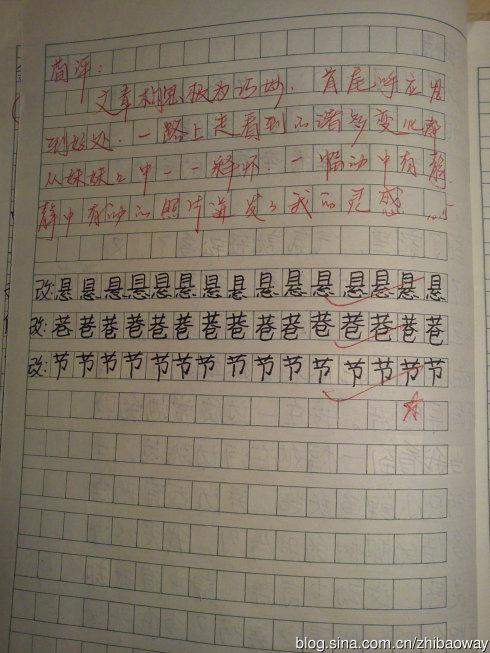 简评：
文章构思极为巧妙，首尾呼应恰
到好处。一路上走看到的诸多变化都
从妹妹口中一一释怀。一幅动中有静，
静中有动的照片激发了我的灵感
改:悬悬悬悬悬悬悬悬悬悬悬悬悬悬悬
改:巷巷巷巷巷巷巷巷巷巷巷巷巷巷巷
改:节节节节节节节节节节节节节节节
blog.sina.com.cn/zhibaoway